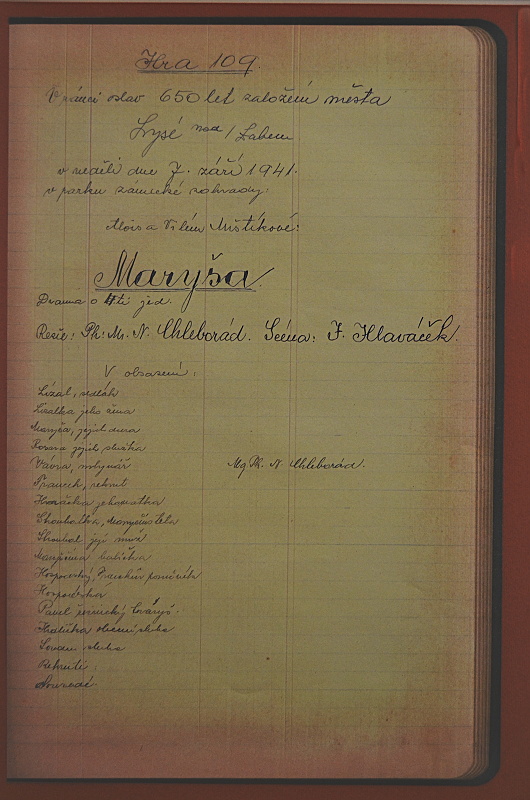 Hra 109.
V rámci oslav 650 let založení města
Lysé nad/Labem
v neděli dne 7. září 1941.
v parku zámecké zahrady:
Alois a Vilém Mrštíkové:
Maryša.
Drama o 4ti jed.
Režie: Ph. Mr. N. Chleborád. Scéna: F. Hlaváček.
V obsazení:
Lízal, sedlák
Lízalka jeho žena
Maryša, jejich dcera
Rozára jejich služka
Vávra, mlynář Mg. Ph. N. Chleborád.
Francek, rekrut
Horačka jeho matka
Strouhalka, Maryšina teta
Strouhal její muž
Maryšina babička
Hospodský, Franckův poručník
Hospodská
Pavel
Hrdlička obecní sluha
sluha
Rekruti
Sousedé.